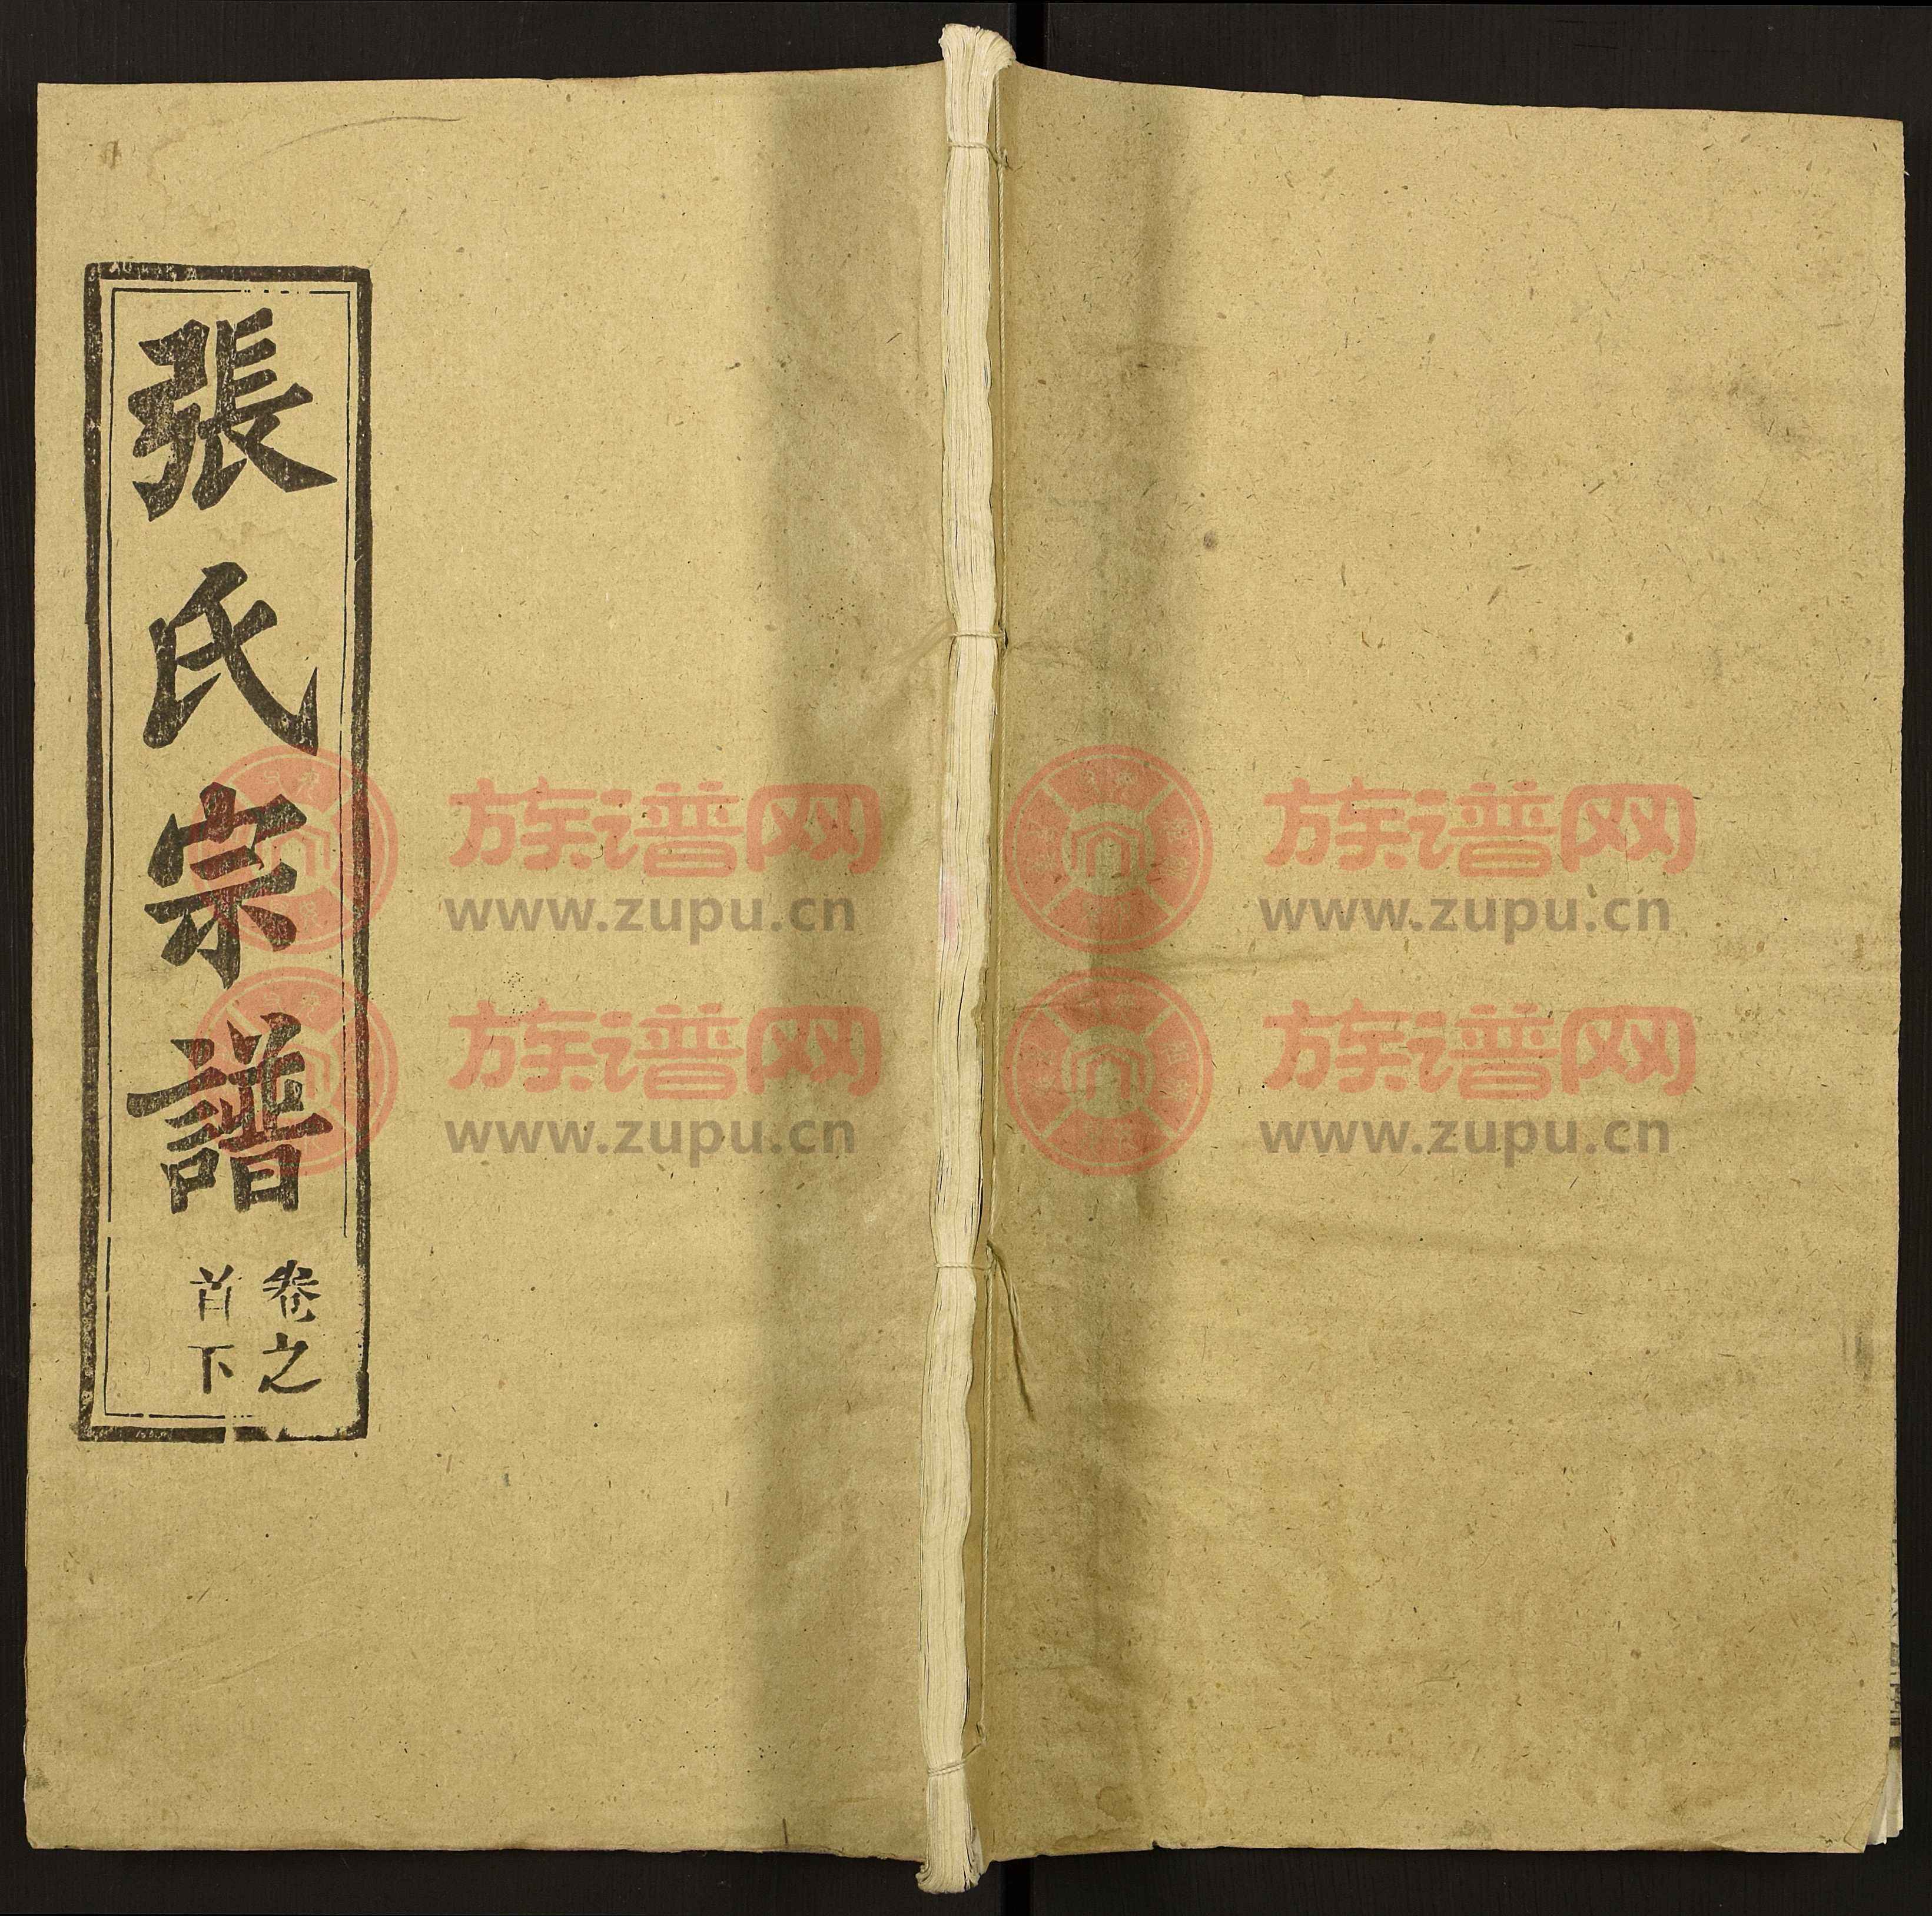 張氏宗譜
卷之
首下
族谱网
www.zupu.cn
族谱网
www.zupu.cn
族谱网
www.zupu.cn
族谱网
www.zupu.cn